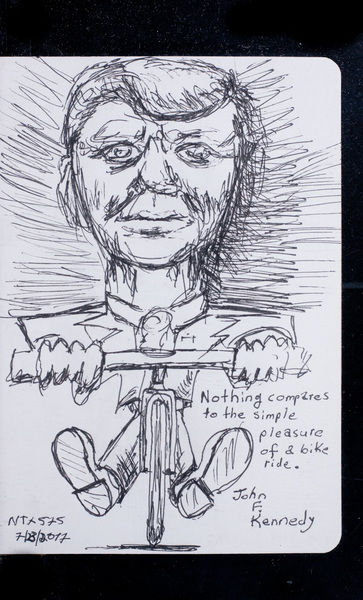 Nothing compares
to the simple
pleasure
of a bike
ride.
John
F.
Kennedy
NTX575
7/8/2017